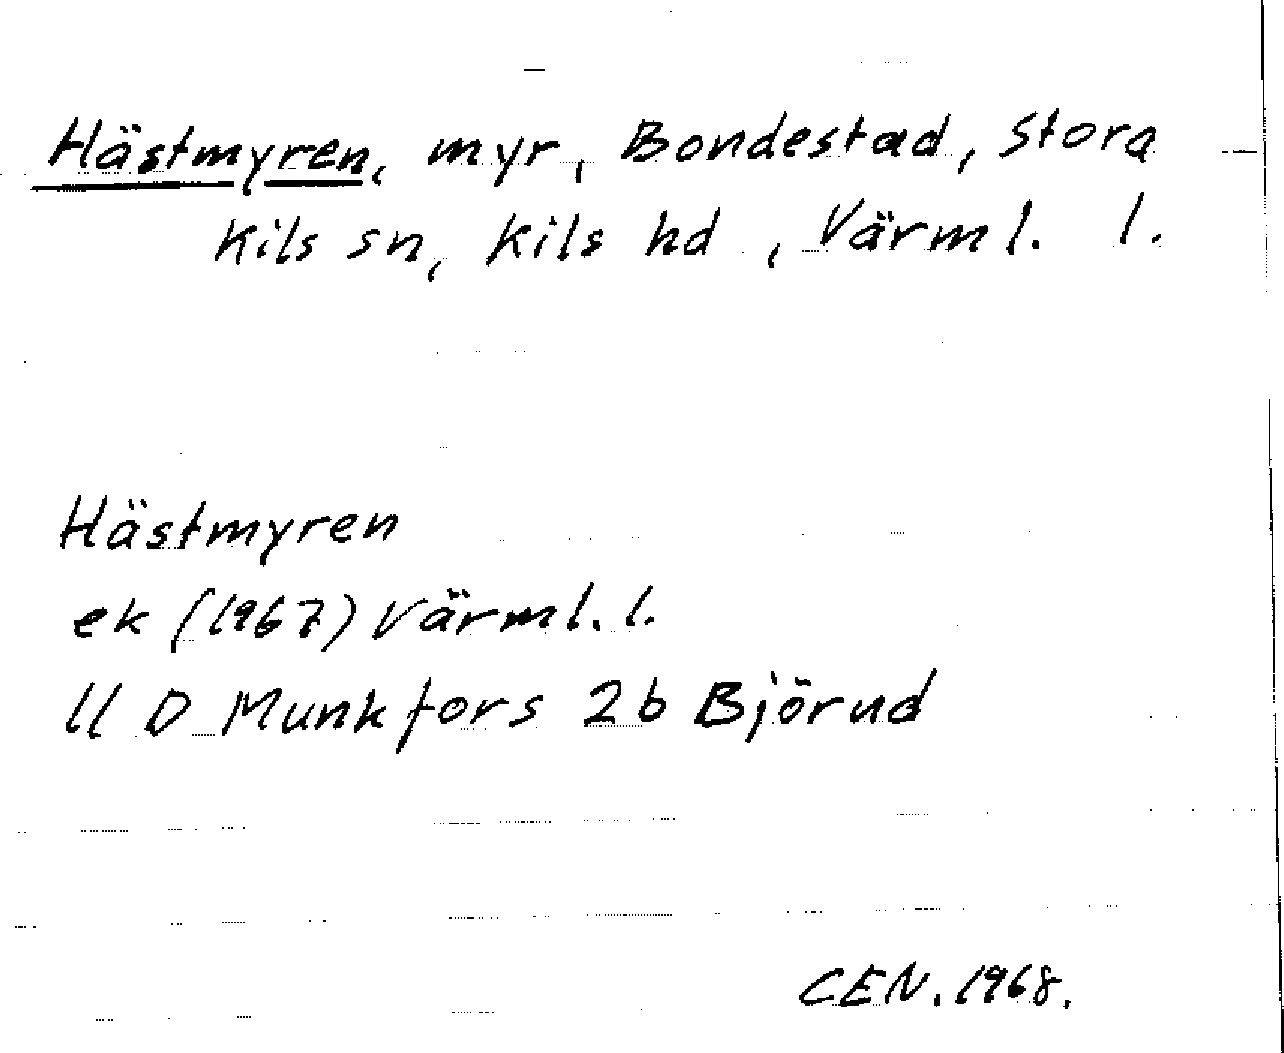 Hästmyren, myr, Bondestad, Stora
Kils sn, Kils hd, Värml. l.
Hästmyren
ek (1967) Värml. l.
11 D Munkfors 2b Björud
CEN. 1968.